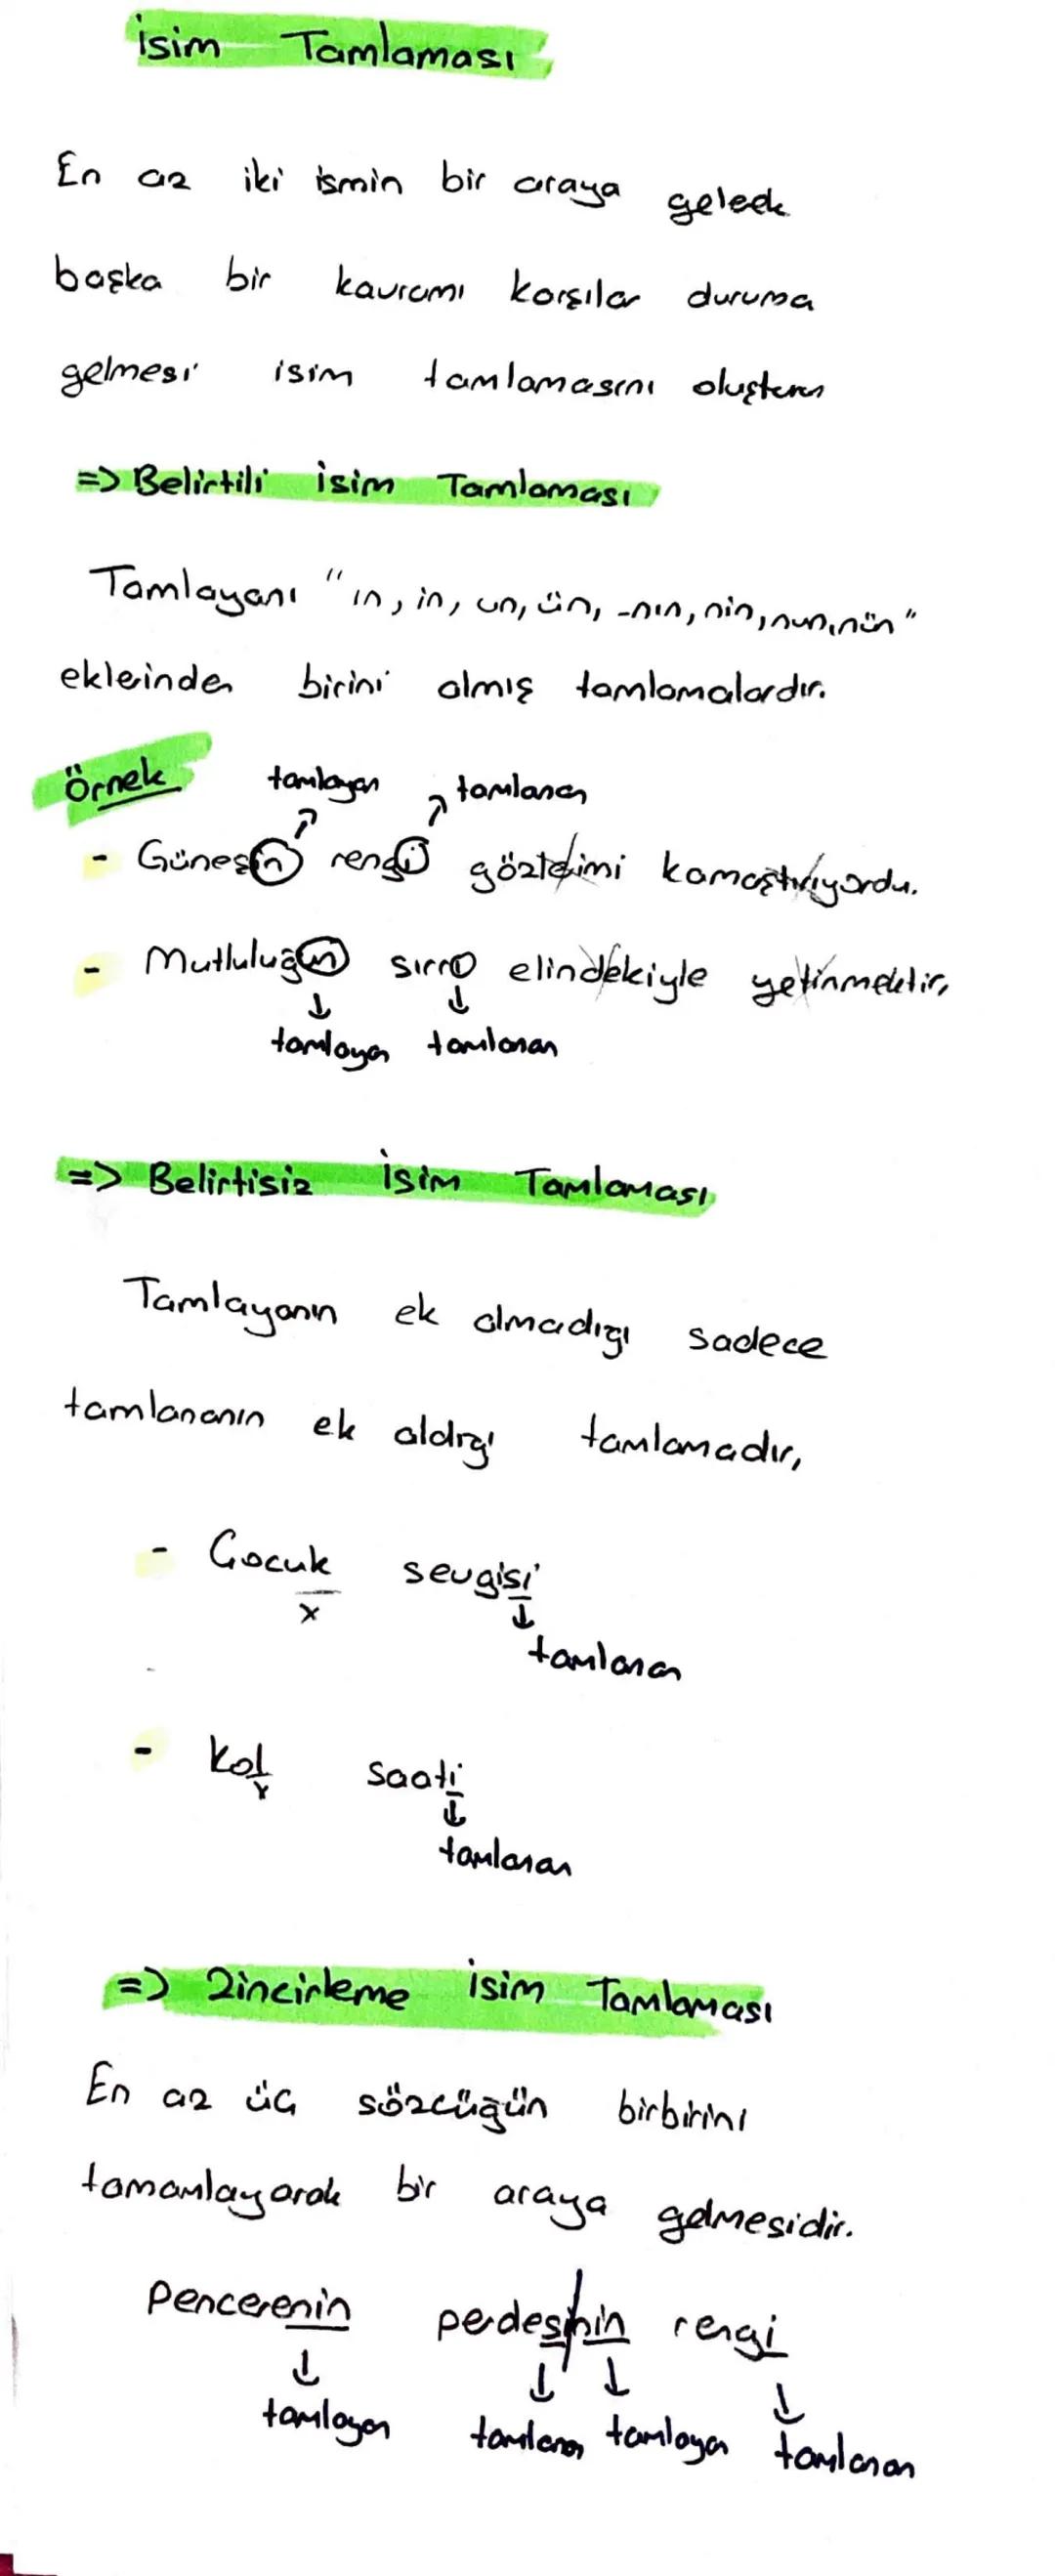 İsim Tamlaması
En az iki ismin bir araya gelerek
başka bir kavramı karşılar duruma
gelmesi isim tamlamasını oluşturur
=> Belirtili İsim Tamlaması
Tamlayanı "ın, in, un, ün, -nın, nin, nun, nün"
eklerinden birini almış tamlamalardır.
Örnek
tamlayan tamlanan
- Güneşin rengi gözlerimi kamaştırıyordu.
- Mutluluğun sırrı elindekiyle yetinmektir,
tamlayan tamlanan
=> Belirtisiz İsim Tamlaması
Tamlayanın ek almadığı sadece
tamlananın ek aldığı tamlamadır,
- Çocuk sevgisi
x
tamlanan
- Kol saati
x
tamlanan
=> Zincirleme İsim Tamlaması
En az üç sözcüğün birbirini
tamamlayarak bir araya gelmesidir.
Pencerenin perdesinin rengi
tamlayan tamlanan tamlayan tamlanan